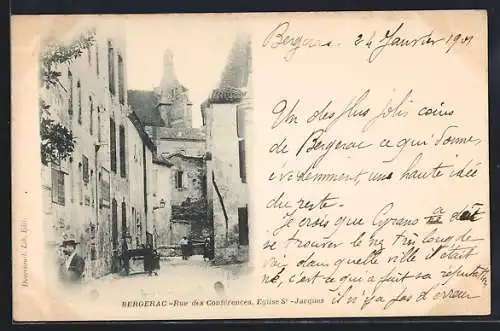 Bergerac. 24 Janvier 1901
Un des plus jolis coins
de Bergerac ce qui donne,
évidemment, une haute idée
du reste.
Je crois que Cyrano a dû
se trouver le nez trop long de
voir dans quelle ville il était
né, c'est ce qui a fait sa réputation
il n'y a pas d'erreur
BERGERAC - Rue des Conférences, Eglise St-Jacques
Lib. Edit.